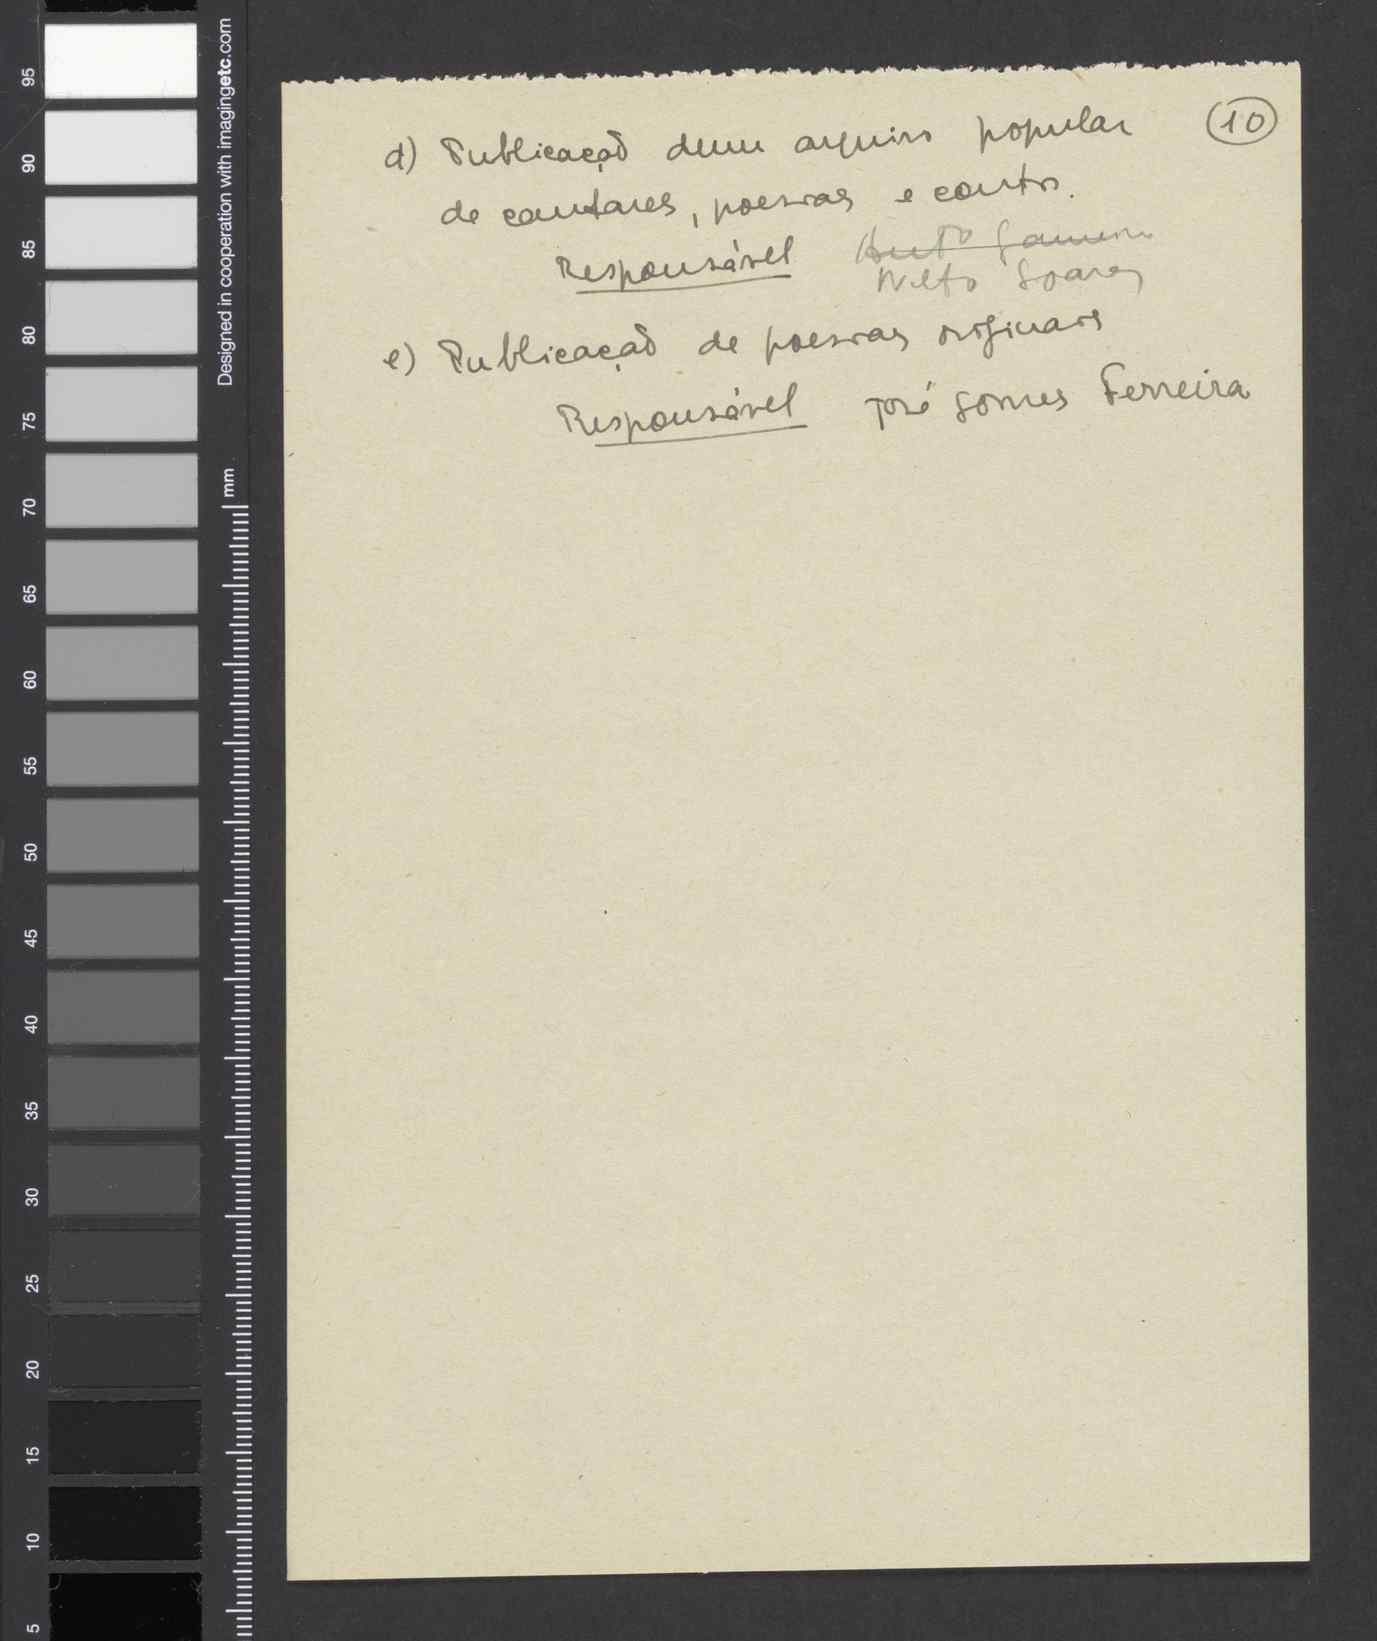 10
d) Publicação dum arquivo popular
de cantares, poesias e contos.
Responsável
Nelto Soares
e) Publicação de poesias originais
Responsável José Gomes Ferreira
Designed in cooperation with imagingetc.com
mm
95
90
85
80
75
70
65
60
55
50
45
40
35
30
25
20
15
10
5